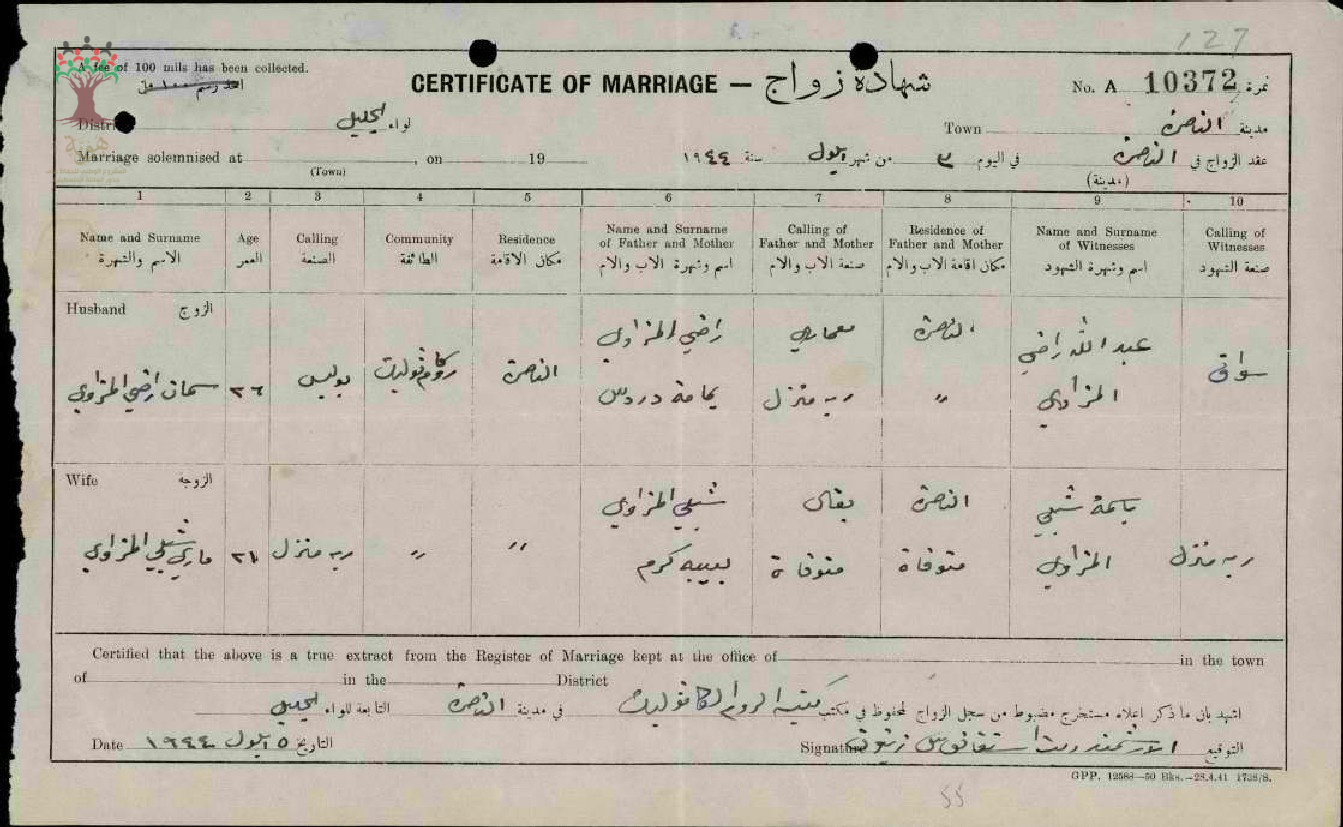 127
A fee of 100 mils has been collected.
CERTIFICATE OF MARRIAGE — شهادة زواج
No. A 10372 نمرة
District لواء الجليل
Town مدينة الناصرة
Marriage solemnised at , on 19
(Town)
عقد الزواج في الناصرة في اليوم ٣ من شهر ايلول سنة ١٩٤٤
(مدينة)
1 2 3 4 5 6 7 8 9 10
Name and Surname
الاسم والشهرة
Age
العمر
Calling
الصنعة
Community
الطائفة
Residence
مكان الاقامة
Name and Surname of Father and Mother
اسم وشهرة الاب والام
Calling of Father and Mother
صنعة الاب والام
Residence of Father and Mother
مكان اقامة الاب والام
Name and Surname of Witnesses
اسم وشهرة الشهود
Calling of Witnesses
صنعة الشهود
Husband الزوج
سمعان راضي المزاوي
٢٦
بوليس
روم كاثوليك
الناصرة
راضي المزاوي
يمامة دردس
معماري
ربة منزل
الناصرة
〃
عبد الله راضي
المزاوي
سواق
Wife الزوجة
ماري شبلي المزاوي
٢١
ربة منزل
〃
〃
شبلي المزاوي
لبيبه كرم
بقال
متوفاة
الناصرة
متوفاة
باسمة شبلي
المزاوي
ربة منزل
Certified that the above is a true extract from the Register of Marriage kept at the office of in the town
of in the District
اشهد بان ما ذكر اعلاه مستخرج مضبوط من سجل الزواج المحفوظ في مكتب كنيسة الروم الكاثوليك في مدينة الناصرة التابعة للواء الجليل
Date التاريخ ٥ ايلول ١٩٤٤
Signature التوقيع
GPP. 12588—50 Bks.—28.4.41 1738/S.
55